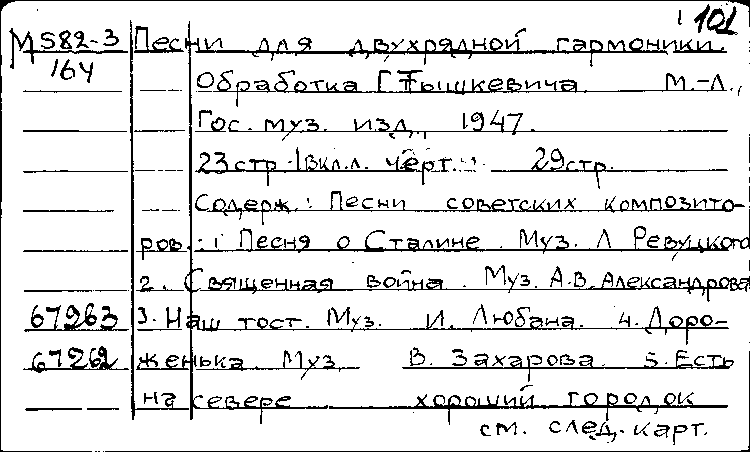 101
М 582-3 Песни для двухрядной гармоники.
164 Обработка Г Тышкевича М.-Л.,
Гос. муз. изд., 1947.
23 стр. 1 вкл.л. черт. 29 стр.
Содерж.: Песни советских композито-
ров.: 1 Песня о Сталине Муз. Л Ревуцкого
2. Священная война. Муз. А.В. Александрова
67263 3. Наш тост. Муз. И. Любана. 4. Доро-
67262 женька Муз В. Захарова 5. Есть
на севере хороший городок
см. след. карт.